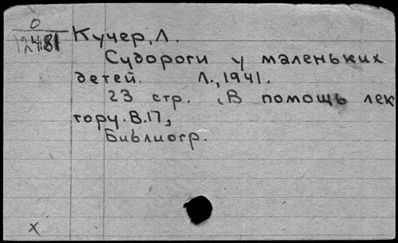 О
12481
Кучер, Л.
Судороги у маленьких
детей. Л., 1941.
23 стр. (В помощь лек
тору. В.17,
Библиогр.
х